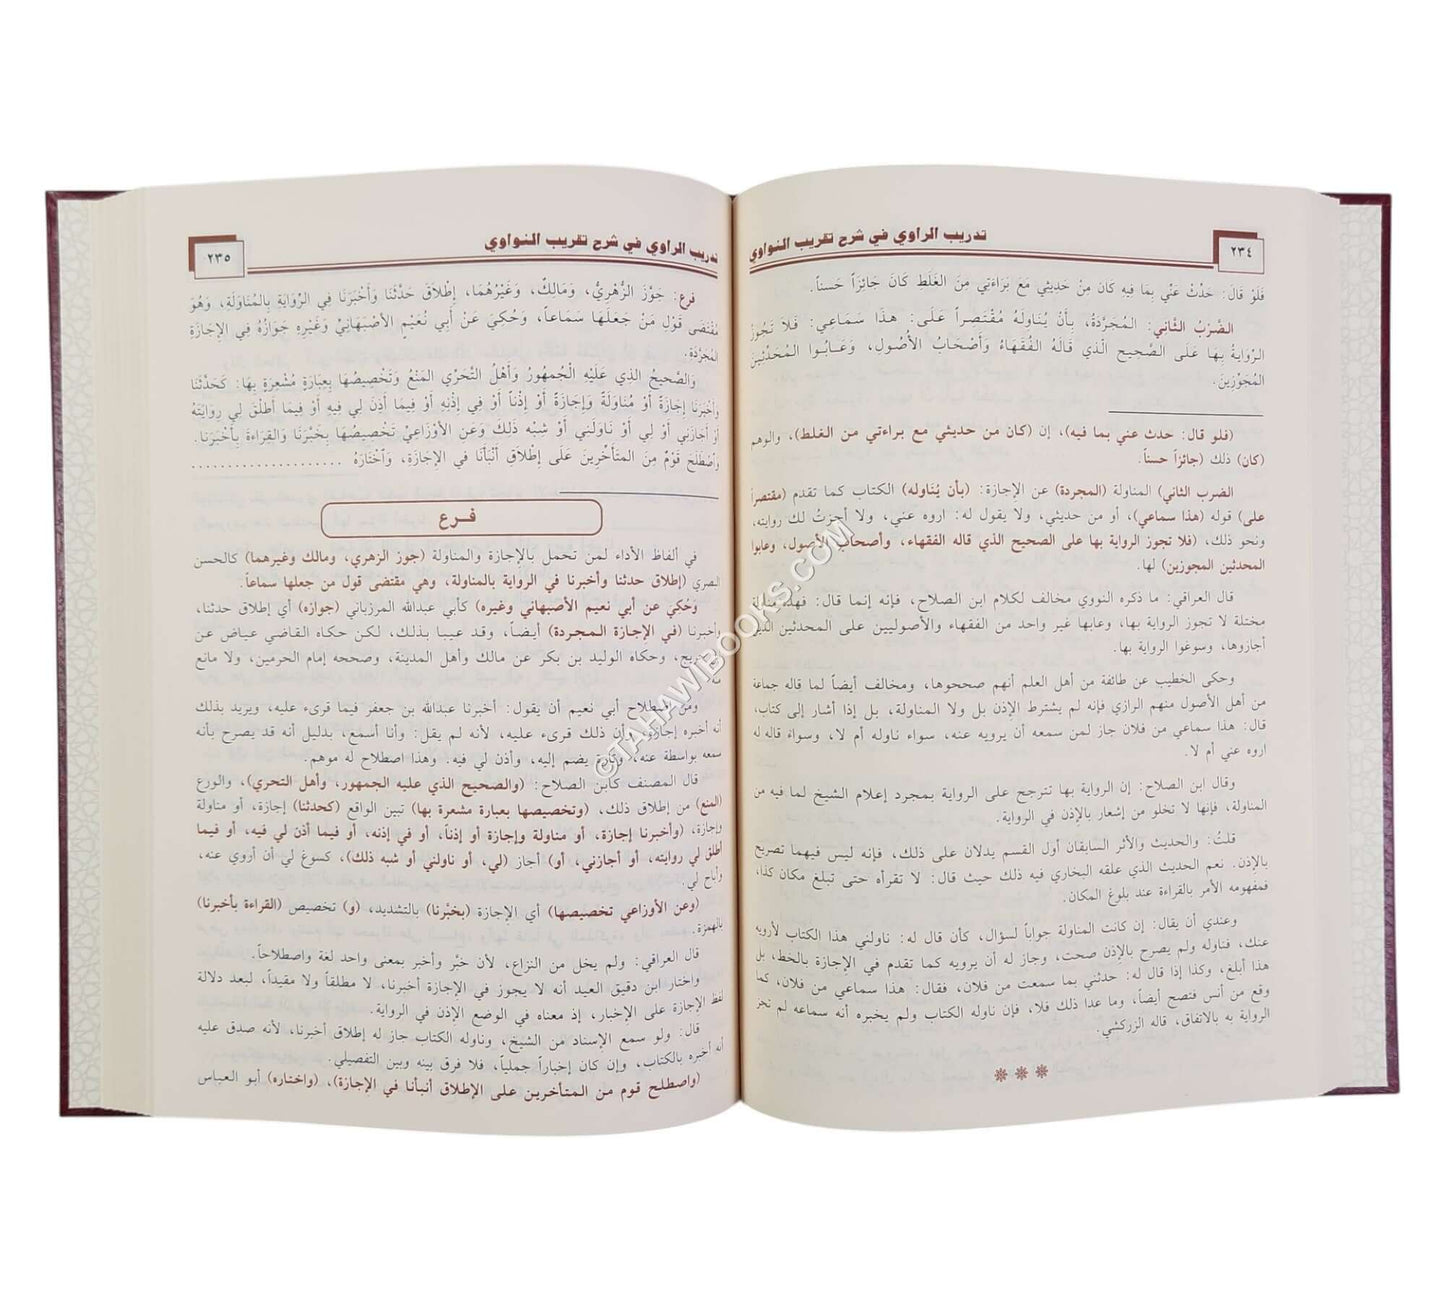 ٢٣٤
تدريب الراوي في شرح تقريب النواوي
فَلَوْ قَالَ: حَدِّثْ عَنِّي بِمَا فِيهِ كَانَ مِنْ حَدِيثِي مَعَ بَرَاءَتِي مِنَ الغَلَطِ كَانَ جَائِزَاً حَسَناً.
الضَّرْبُ الثَّانِي: المُجَرَّدَةُ، بِأَنْ يُنَاوِلَهُ مُقْتَصِرَاً عَلَى: هذَا سَمَاعِي: فَلَا تَجُوزُ
الرِّوَايَةُ بِهَا عَلَى الصَّحِيحِ الَّذِي قَالَهُ الفُقَهَاءُ وَأَصْحَابُ الأُصُولِ، وَعَابُوا المُحَدِّثِينَ
المُجَوِّزِينَ.
(فلو قال: حدث عني بما فيه، إن (كان من حديثي مع براءتي من الغلط)، والوهم
(كان) ذلك (جائزاً حسناً.
الضرب الثاني) المناولة (المجردة) عن الإجازة: (بأن يُناوله) الكتاب كما تقدم (مقتصراً
على) قوله (هذا سماعي)، أو من حديثي، ولا يقول له: اروه عني، ولا أجزتُ لك روايته،
ونحو ذلك، (فلا تجوز الرواية بها على الصحيح الذي قاله الفقهاء، وأصحاب الأصول، وعابوا
المحدثين المجوزين) لها.
قال العراقي: ما ذكره النووي مخالف لكلام ابن الصلاح، فإنه إنما قال: فهذه مناولة
مختلة لا تجوز الرواية بها، وعابها غير واحد من الفقهاء والأصوليين على المحدثين الذين
أجازوها، وسوغوا الرواية بها.
وحكى الخطيب عن طائفة من أهل العلم أنهم صححوها، ومخالف أيضاً لما قاله جماعة
من أهل الأصول منهم الرازي فإنه لم يشترط الإذن بل ولا المناولة، بل إذا أشار إلى كتاب،
قال: هذا سماعي من فلان جاز لمن سمعه أن يرويه عنه، سواء ناوله أم لا، وسواءً قاله له
اروه عني أم لا.
وقال ابن الصلاح: إن الرواية بها تترجح على الرواية بمجرد إعلام الشيخ لما فيه من
المناولة، فإنها لا تخلو من إشعار بالإذن في الرواية.
قلتُ: والحديث والأثر السابقان أول القسم يدلان على ذلك، فإنه ليس فيهما تصريح
بالإذن. نعم الحديث الذي علقه البخاري فيه ذلك حيث قال: لا تقرأه حتى تبلغ مكان كذا،
فمفهومه الأمر بالقراءة عند بلوغ المكان.
وعندي أن يقال: إن كانت المناولة جواباً لسؤال، كأن قال له: ناولني هذا الكتاب لأرويه
عنك، فناوله ولم يصرح بالإذن صحت، وجاز له أن يرويه كما تقدم في الإجازة بالخط، بل
هذا أبلغ، وكذا إذا قال له: حدثني بما سمعت من فلان، فقال: هذا سماعي من فلان، كما
وقع من أنس فتصح أيضاً، وما عدا ذلك فلا، فإن ناوله الكتاب ولم يخبره أنه سماعه لم تجز
الرواية به بالاتفاق، قاله الزركشي.
٢٣٥
تدريب الراوي في شرح تقريب النواوي
فرع: جَوَّزَ الزُّهْرِيُّ، وَمَالِكٌ، وَغَيْرُهُمَا، إِطْلاَقَ حَدَّثَنَا وَأَخْبَرَنَا فِي الرِّوَايَةِ بِالمُنَاوَلَةِ، وَهُوَ
مُقْتَضَى قَوْلِ مَنْ جَعَلَهَا سَمَاعَاً، وَحُكِيَ عَنْ أَبِي نُعَيْمٍ الأَصْبَهَانِيِّ وَغَيْرِهِ جَوَازُهُ فِي الإِجَازَةِ
المُجَرَّدَةِ.
وَالصَّحِيحُ الذِي عَلَيْهِ الْجُمهُورُ وَأَهْلُ التَّحَرِّي المَنْعُ وَتَخْصِيصُهَا بِعِبَارَةٍ مُشْعِرَةٍ بِهَا: كَحَدَّثَنَا
وَأَخْبَرَنَا إِجَازَةً أَوْ مُنَاوَلَةً وَإِجَازَةً أَوْ إِذْنَاً أَوْ فِي إِذْنِهِ أَوْ فِيمَا أَذِنَ لِي فِيهِ أَوْ فِيمَا أَطْلَقَ لِي رِوَايَتَهُ
أَوْ أَجَازَنِي أَوْ لِي أَوْ نَاوَلَنِي أَوْ شِبْه ذَلِكَ وَعَنِ الأَوْزَاعِيِّ تَخْصِيصُهَا بِخَبَّرَنَا وَالقِرَاءَةِ بِأَخْبَرَنَا.
وَاصْطَلَحَ قَوْمٌ مِنَ المتَأَخِّرِينَ عَلَى إِطْلَاقِ أَنْبَأَنَا في الإجَازَةِ، وَاخْتَارَهُ ..............................
فرع
في ألفاظ الأداء لمن تحمل بالإجازة والمناولة (جوز الزهري، ومالك وغيرهما) كالحسن
البصري (إطلاق حدثنا وأخبرنا في الرواية بالمناولة، وهي مقتضى قول من جعلها سماعاً.
وَحُكيَ عن أبي نعيم الأصبهاني وغيره) كأبي عبدالله المرزباني (جوازه) أي إطلاق حدثنا،
وأخبرنا (في الإجازة المجردة) أيضاً، وقد عيبا بذلك، لكن حكاه القاضي عياض عن
جريج، وحكاه الوليد بن بكر عن مالك وأهل المدينة، وصححه إمام الحرمين، ولا مانع
منه.
ومن اصطلاح أبي نعيم أن يقول: أخبرنا عبدالله بن جعفر فيما قرىء عليه، ويريد بذلك
أنه أخبره إجازة، وأن ذلك قرىء عليه، لأنه لم يقل: وأنا أسمع، بدليل أنه قد يصرح بأنه
سمعه بواسطة عنه، وتارة يضم إليه، وأذن لي فيه. وهذا اصطلاح له موهم.
قال المصنف كابن الصلاح: (والصحيح الذي عليه الجمهور، وأهل التحري)، والورع
(المنع) من إطلاق ذلك، (وتخصيصها بعبارة مشعرة بها) تبين الواقع (كحدثنا) إجازة، أو مناولة
وإجازة، (وأخبرنا إجازة، أو مناولة وإجازة أو إذناً، أو في إذنه، أو فيما أذن لي فيه، أو فيما
أطلق لي روايته، أو أجازني، أو) أجاز (لي، أو ناولني أو شبه ذلك)، كسوغ لي أن أروي عنه،
وأباح لي.
(وعن الأوزاعي تخصيصها) أي الإجازة (بخبَّرنا) بالتشديد، (و) تخصيص (القراءة بأخبرنا)
بالهمزة.
قال العراقي: ولم يخل من النزاع، لأن خبَّر وأخبر بمعنى واحد لغة واصطلاحاً.
واختار ابن دقيق العيد أنه لا يجوز في الإجازة أخبرنا، لا مطلقاً ولا مقيداً، لبعد دلالة
لفظ الإجازة على الإخبار، إذ معناه في الوضع الإذن في الرواية.
قال: ولو سمع الإسناد من الشيخ، وناوله الكتاب جاز له إطلاق أخبرنا، لأنه صدق عليه
أنه أخبره بالكتاب، وإن كان إخباراً جملياً، فلا فرق بينه وبين التفصيلي.
(واصطلح قوم من المتأخرين على الإطلاق أنبأنا في الإجازة)، (واختاره) أبو العباس
©TAHAWIBOOKS.COM